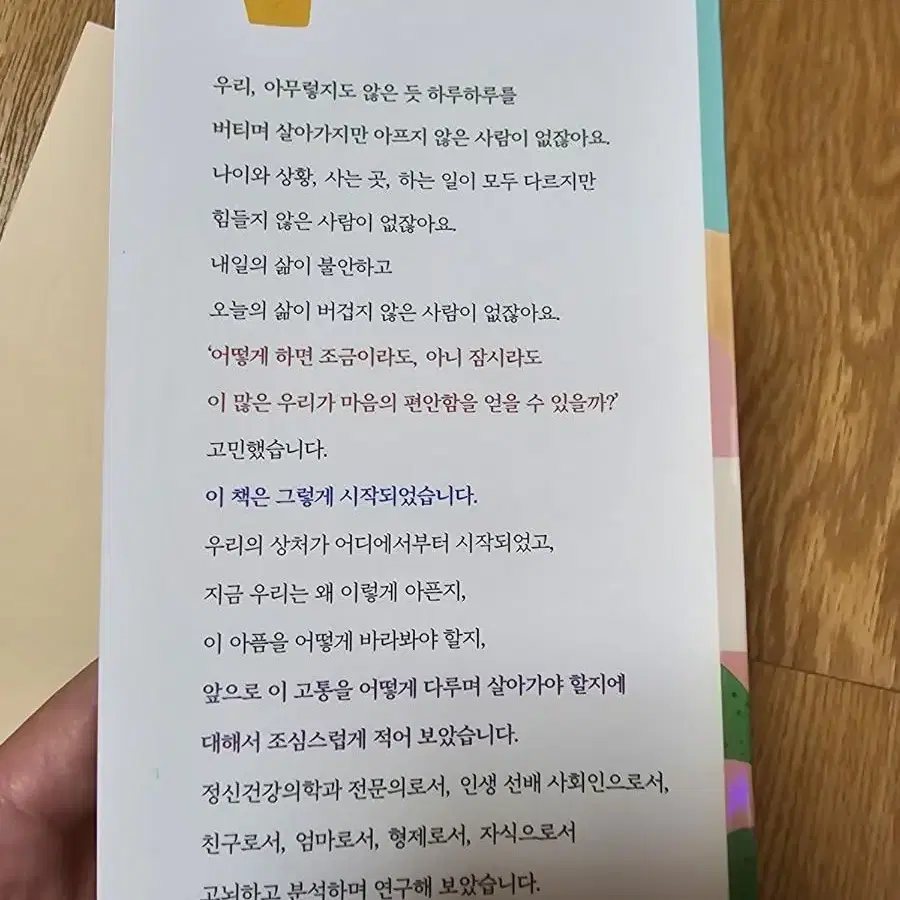 우리, 아무렇지도 않은 듯 하루하루를
버티며 살아가지만 아프지 않은 사람이 없잖아요.
나이와 상황, 사는 곳, 하는 일이 모두 다르지만
힘들지 않은 사람이 없잖아요.
내일의 삶이 불안하고
오늘의 삶이 버겁지 않은 사람이 없잖아요.
‘어떻게 하면 조금이라도, 아니 잠시라도
이 많은 우리가 마음의 편안함을 얻을 수 있을까?’
고민했습니다.
이 책은 그렇게 시작되었습니다.
우리의 상처가 어디에서부터 시작되었고,
지금 우리는 왜 이렇게 아픈지,
이 아픔을 어떻게 바라봐야 할지,
앞으로 이 고통을 어떻게 다루며 살아가야 할지에
대해서 조심스럽게 적어 보았습니다.
정신건강의학과 전문의로서, 인생 선배 사회인으로서,
친구로서, 엄마로서, 형제로서, 자식으로서
고뇌하고 분석하며 연구해 보았습니다.